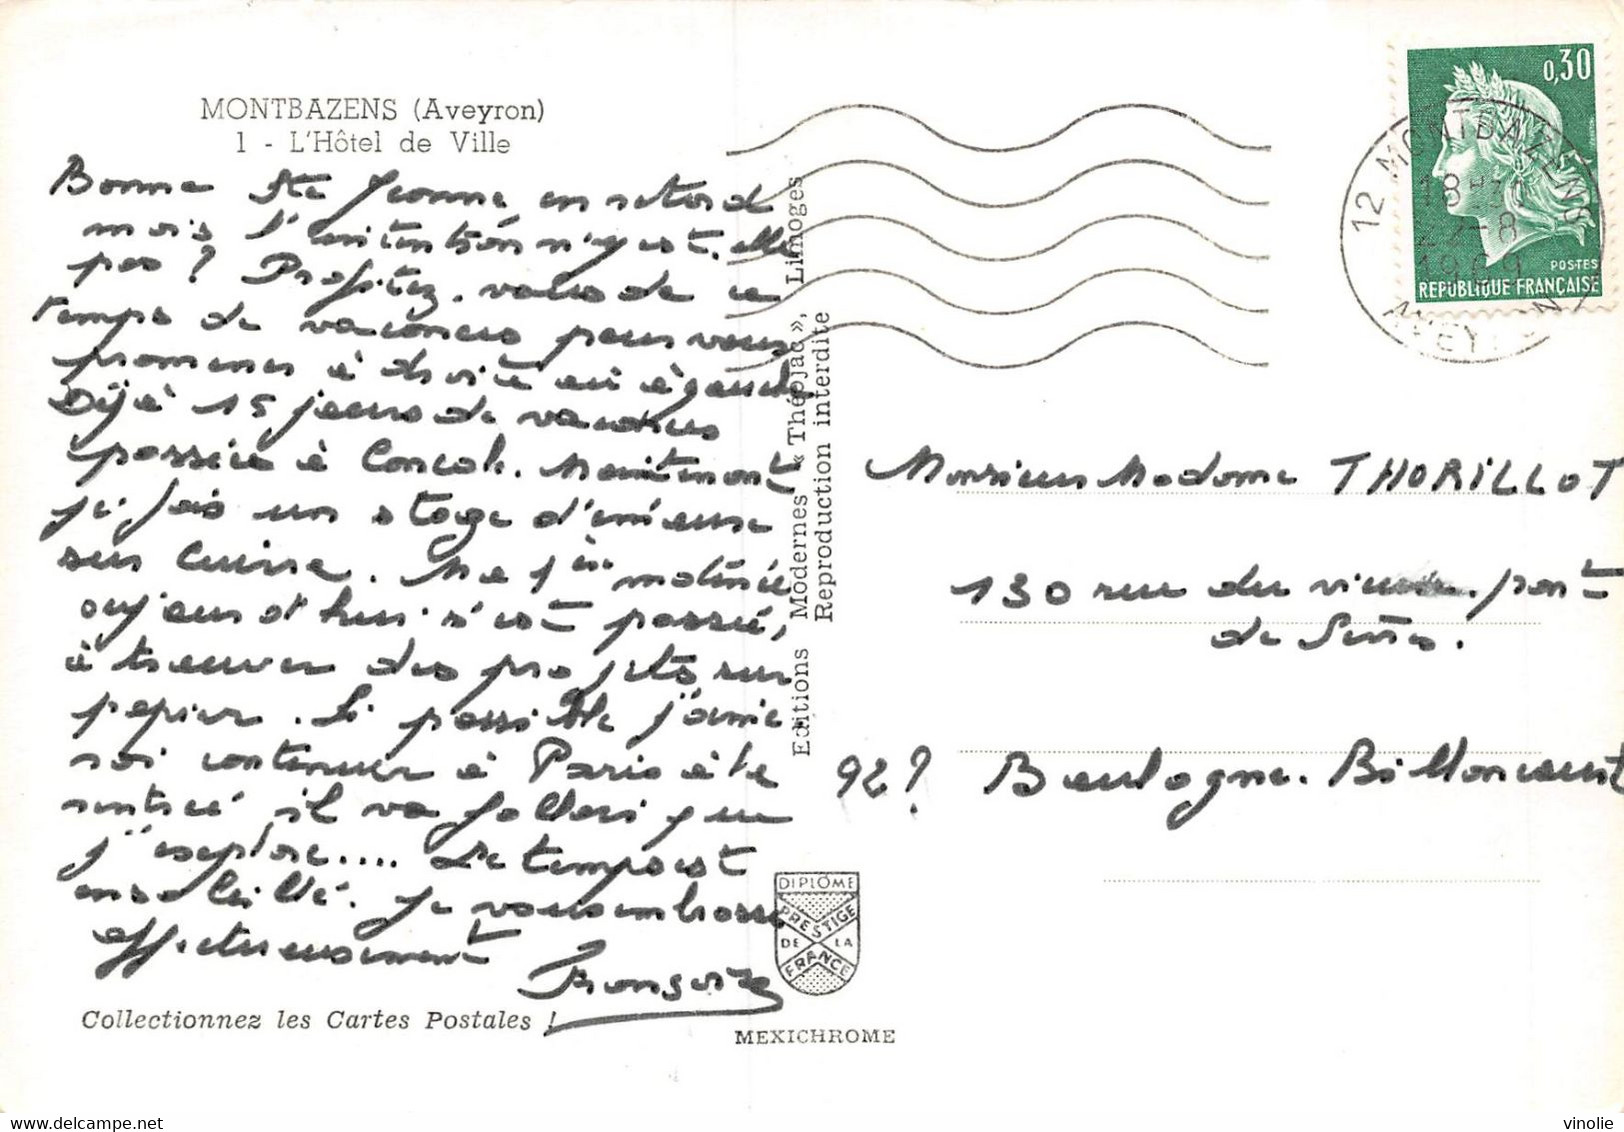 MONTBAZENS (Aveyron)
1 - L'Hôtel de Ville
Bonne Ste Jeanne en retard
mais l'intention n'y est-elle
pas ? Profitez-vous de ce
temps de vacances pour vous
promener à droite ou à gauche
Déjà 15 jours de vacances
passées à Maintenant
je fais un stage d'
sur cuisse. Ma 1ère matinée
aujourd'hui s'est passée,
à trouver des projets sur
papier. Si possible j'aime
rai continuer à Paris à la
rentrée il va falloir que
j'explose.... Le temps est
ensoleillé. Je vous embrasse
affectueusement
Françoise
Collectionnez les Cartes Postales !
Editions Modernes « Théojac », Limoges
Reproduction interdite
DIPLÔME
PRESTIGE
DE LA
FRANCE
MEXICHROME
0,30
POSTES
REPUBLIQUE FRANÇAISE
12 MONTBAZENS
18 H30
-8
1969
AVEYRON
Monsieur Madame THORILLOT
130 rue du vieux pont
de Sèvres.
92? Boulogne-Billancourt
delcampe.net
vinolie